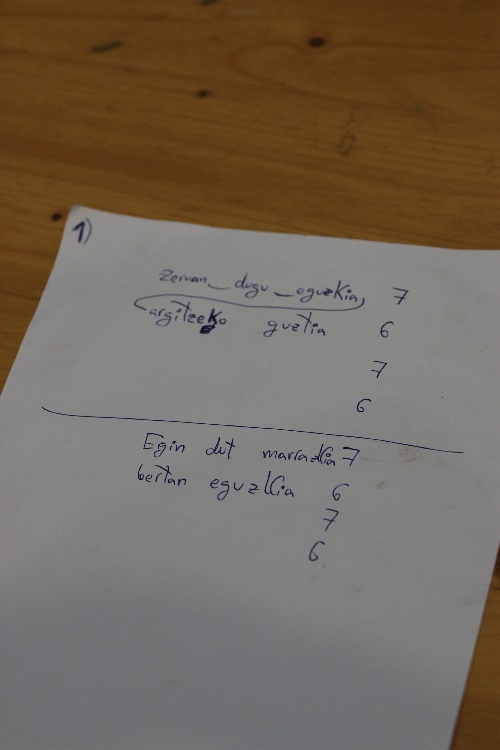 1)
zeruan_ dugu _eguzkia, 7
argitzeko guztia 6
7
6
Egin dut marrazkia 7
bertan eguzkia 6
7
6.